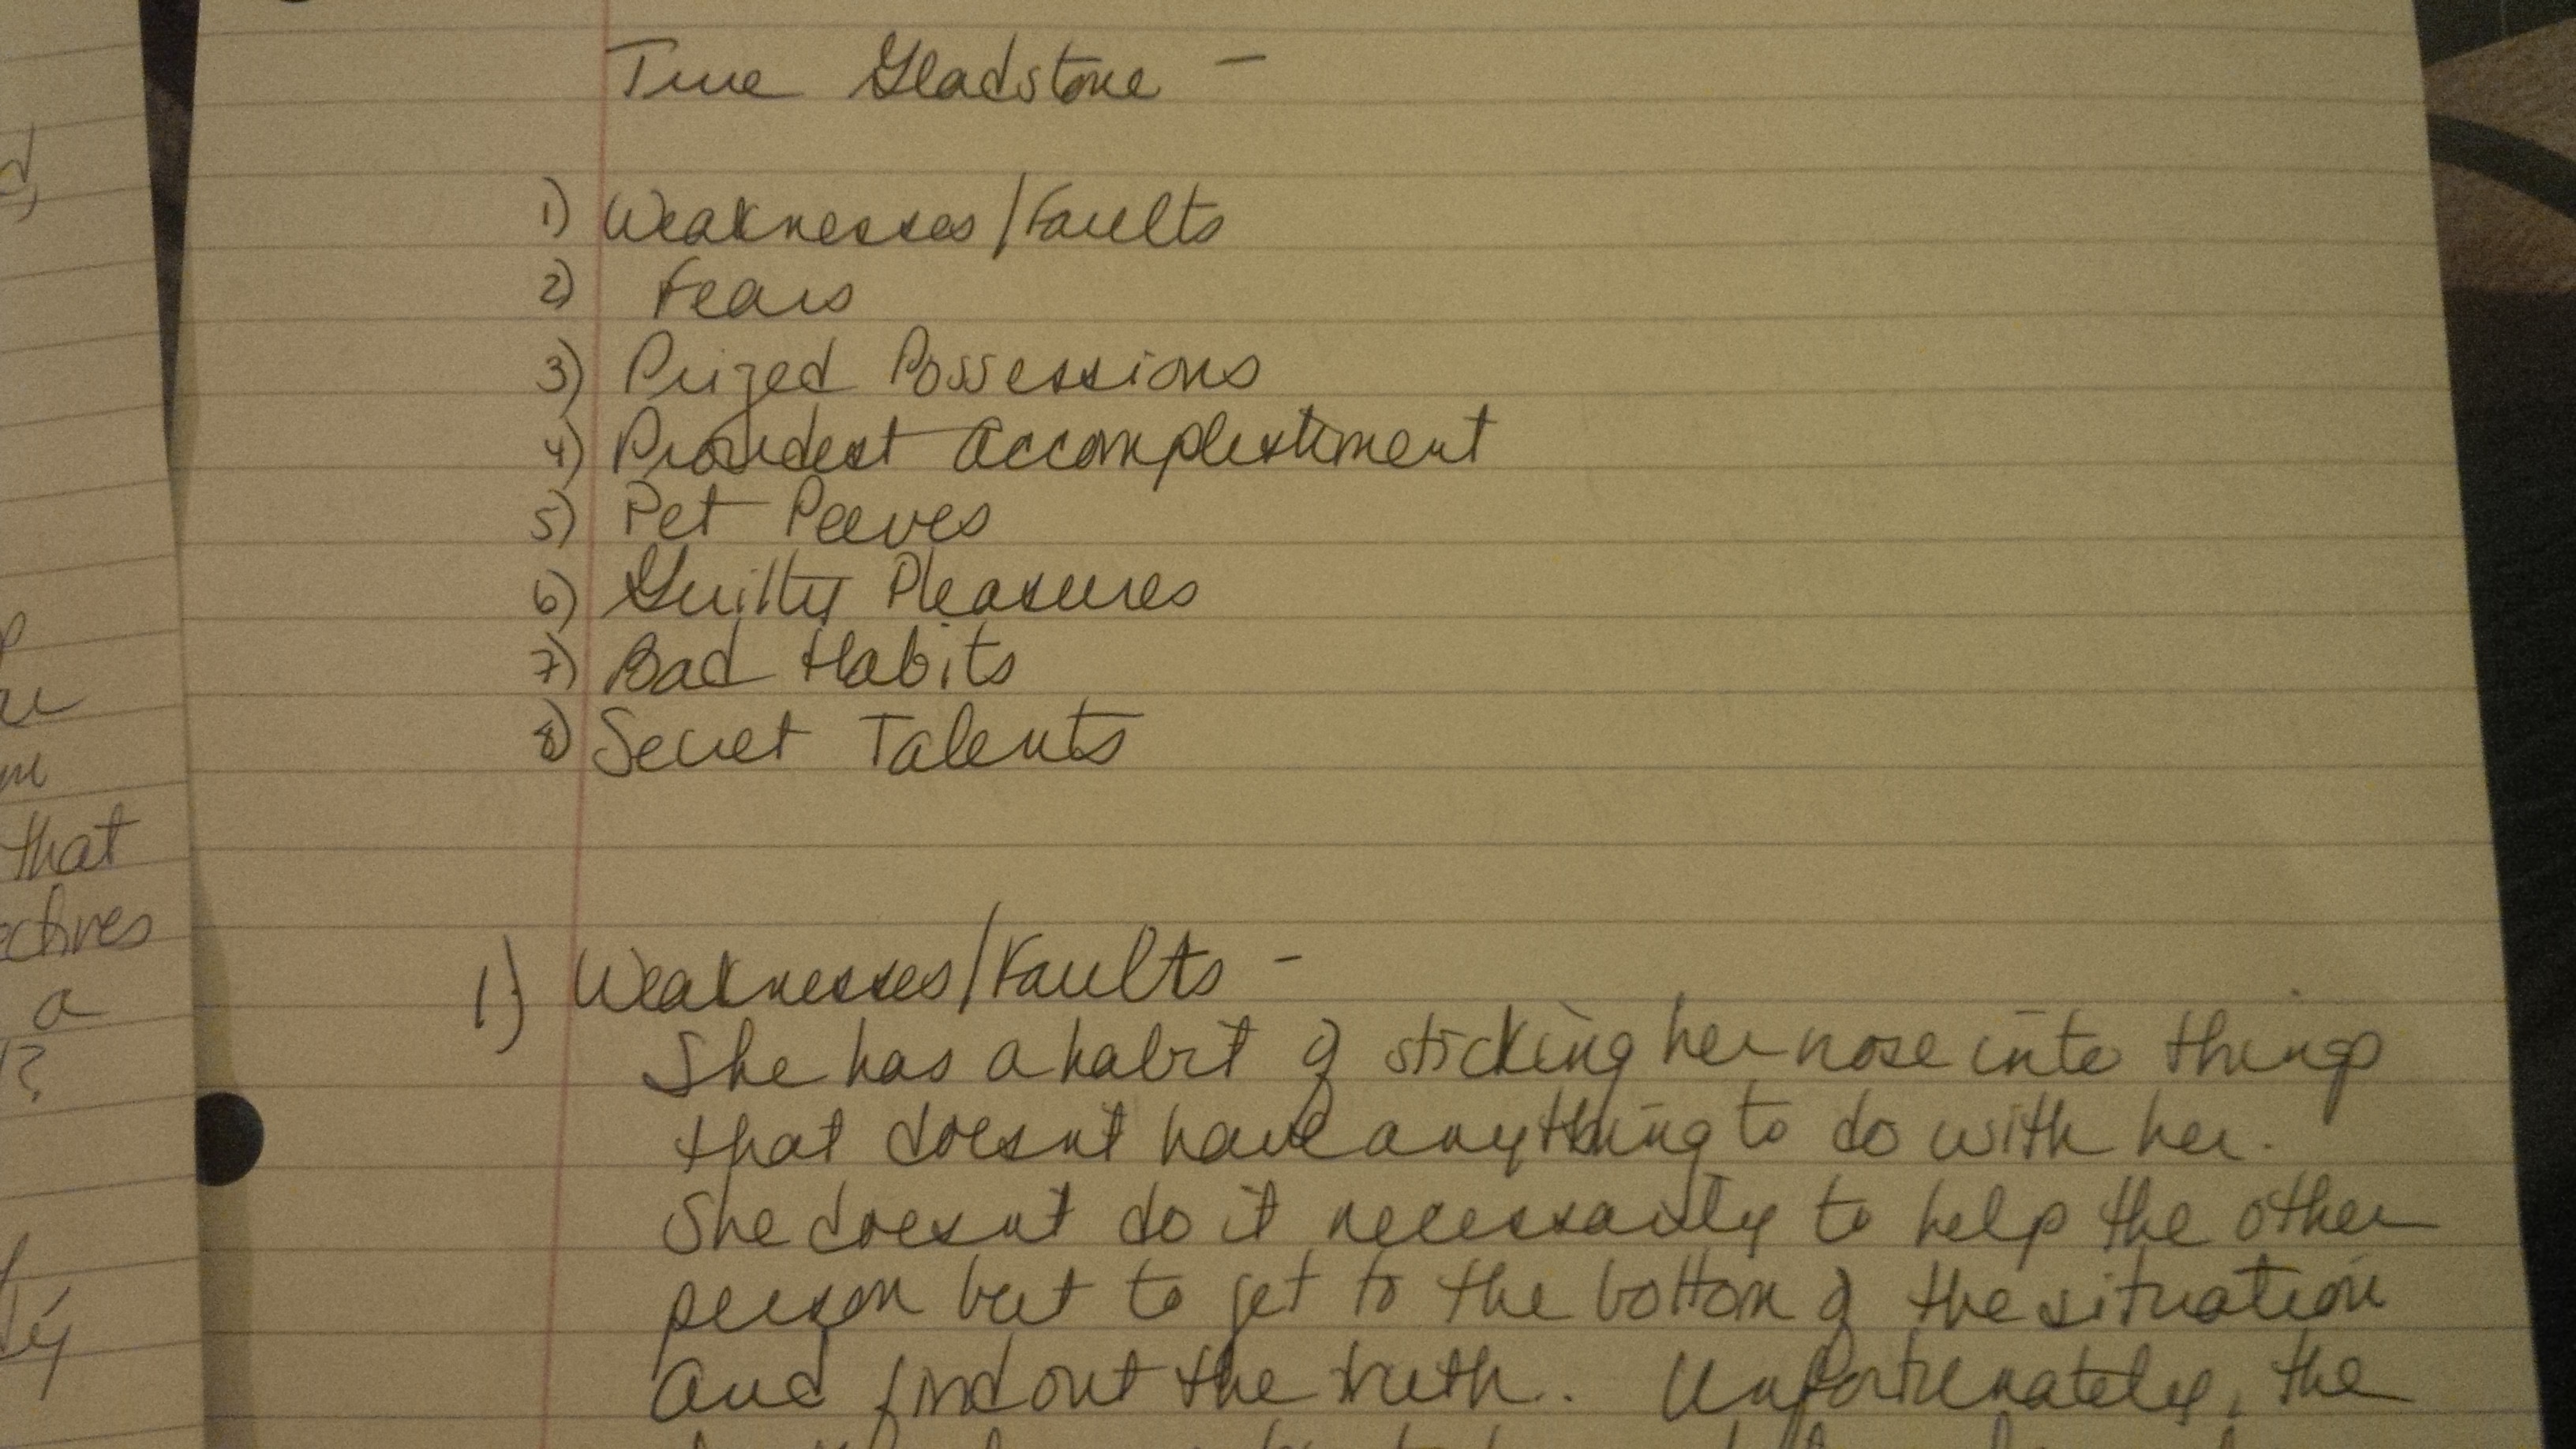 True Gladstone -
1) Weaknesses/Faults
2) Fears
3) Prized Possessions
4) Proudest Accomplishment
5) Pet Peeves
6) Guilty Pleasures
7) Bad Habits
8) Secret Talents
1) Weaknesses/Faults -
She has a habit of sticking her nose into things
that doesnt have anything to do with her.
She doesnt do it necessarily to help the other
person but to get to the bottom of the situation
and find out the truth. Unfortunately, the
that
a